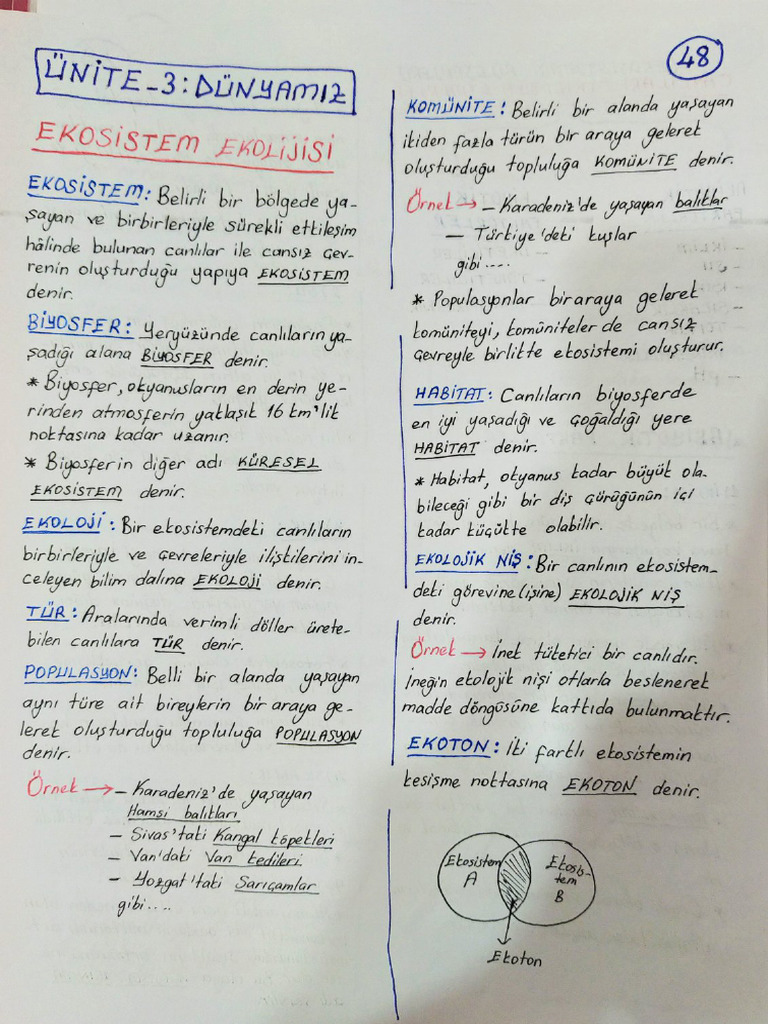 48
ÜNİTE_3: DÜNYAMIZ
EKOSİSTEM EKOLİJİSİ
EKOSİSTEM: Belirli bir bölgede ya-
şayan ve birbirleriyle sürekli etkileşim
hâlinde bulunan canlılar ile cansız çev-
renin oluşturduğu yapıya EKOSİSTEM
denir.
BİYOSFER: Yeryüzünde canlıların ya-
şadığı alana BİYOSFER denir.
* Biyosfer, okyanusların en derin ye-
rinden atmosferin yaklaşık 16 km'lik
noktasına kadar uzanır.
* Biyosferin diğer adı KÜRESEL
EKOSİSTEM denir.
EKOLOJİ: Bir ekosistemdeki canlıların
birbirleriyle ve çevreleriyle ilişkilerini in-
celeyen bilim dalına EKOLOJİ denir.
TÜR: Aralarında verimli döller ürete-
bilen canlılara TÜR denir.
POPULASYON: Belli bir alanda yaşayan
aynı türe ait bireylerin bir araya ge-
lerek oluşturduğu topluluğa POPULASYON
denir.
Örnek → - Karadeniz'de yaşayan
Hamsi balıkları
- Sivas'taki Kangal köpekleri
- Van'daki Van kedileri
- Yozgat'taki Sarıçamlar
gibi....
KOMÜNİTE: Belirli bir alanda yaşayan
ikiden fazla türün bir araya gelerek
oluşturduğu topluluğa KOMÜNİTE denir.
Örnek → - Karadeniz'de yaşayan balıklar
- Türkiye'deki kuşlar
gibi....
* Populasyonlar biraraya gelerek
komüniteyi, komüniteler de cansız
çevreyle birlikte ekosistemi oluşturur.
HABİTAT: Canlıların biyosferde
en iyi yaşadığı ve çoğaldığı yere
HABİTAT denir.
* Habitat, okyanus kadar büyük ola-
bileceği gibi bir diş çürüğünün içi
kadar küçükte olabilir.
EKOLOJİK NİŞ: Bir canlının ekosistem-
deki görevine (işine) EKOLOJİK NİŞ
denir.
Örnek → İnek tüketici bir canlıdır.
İneğin ekolojik nişi otlarla beslenerek
madde döngüsüne katkıda bulunmaktır.
EKOTON: İki farklı ekosistemin
kesişme noktasına EKOTON denir.
Ekosistem
A
Ekosis-
tem
B
Ekoton